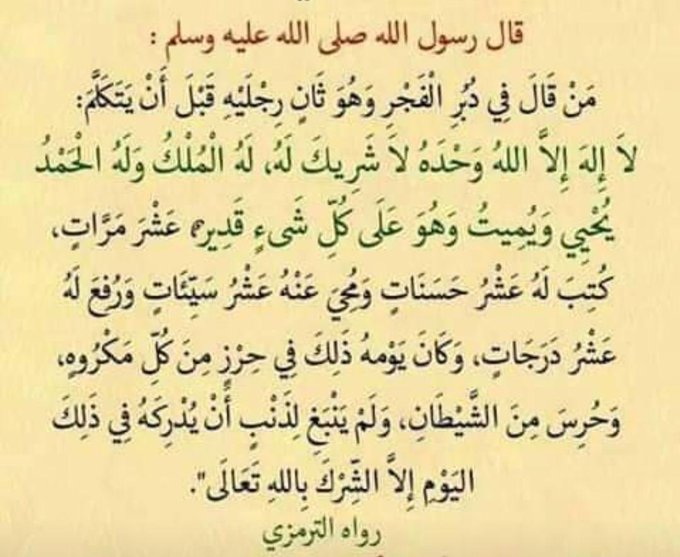 قال رسول الله صلى الله عليه وسلم :
مَنْ قَالَ فِي دُبُرِ الْفَجْرِ وَهُوَ ثَانٍ رِجْلَيْهِ قَبْلَ أَنْ يَتَكَلَّمَ:
لاَ إِلهَ إِلاَّ اللهُ وَحْدَهُ لاَ شَرِيكَ لَهُ، لَهُ الْمُلْكُ وَلَهُ الْحَمْدُ
يُحْيِي وَيُمِيتُ وَهُوَ عَلَى كُلِّ شَىءٍ قَدِيرٍ عَشْرَ مَرَّاتٍ،
كُتِبَ لَهُ عَشْرُ حَسَنَاتٍ وَمُحِيَ عَنْهُ عَشْرُ سَيِّئَاتٍ وَرُفِعَ لَهُ
عَشْرُ دَرَجَاتٍ، وَكَانَ يَوْمهُ ذَلِكَ فِي حِرْزٍ مِنَ كُلِّ مَكْرُوهٍ،
وَحُرِسَ مِنَ الشَّيْطَانِ، وَلَمْ يَنْبَغِ لِذَنْبٍ أَنْ يُدْرِكَهُ فِي ذَلِكَ
اليَوْمِ إِلاَّ الشِّرْكَ بِاللهِ تَعَالَى".
رواه الترمزي